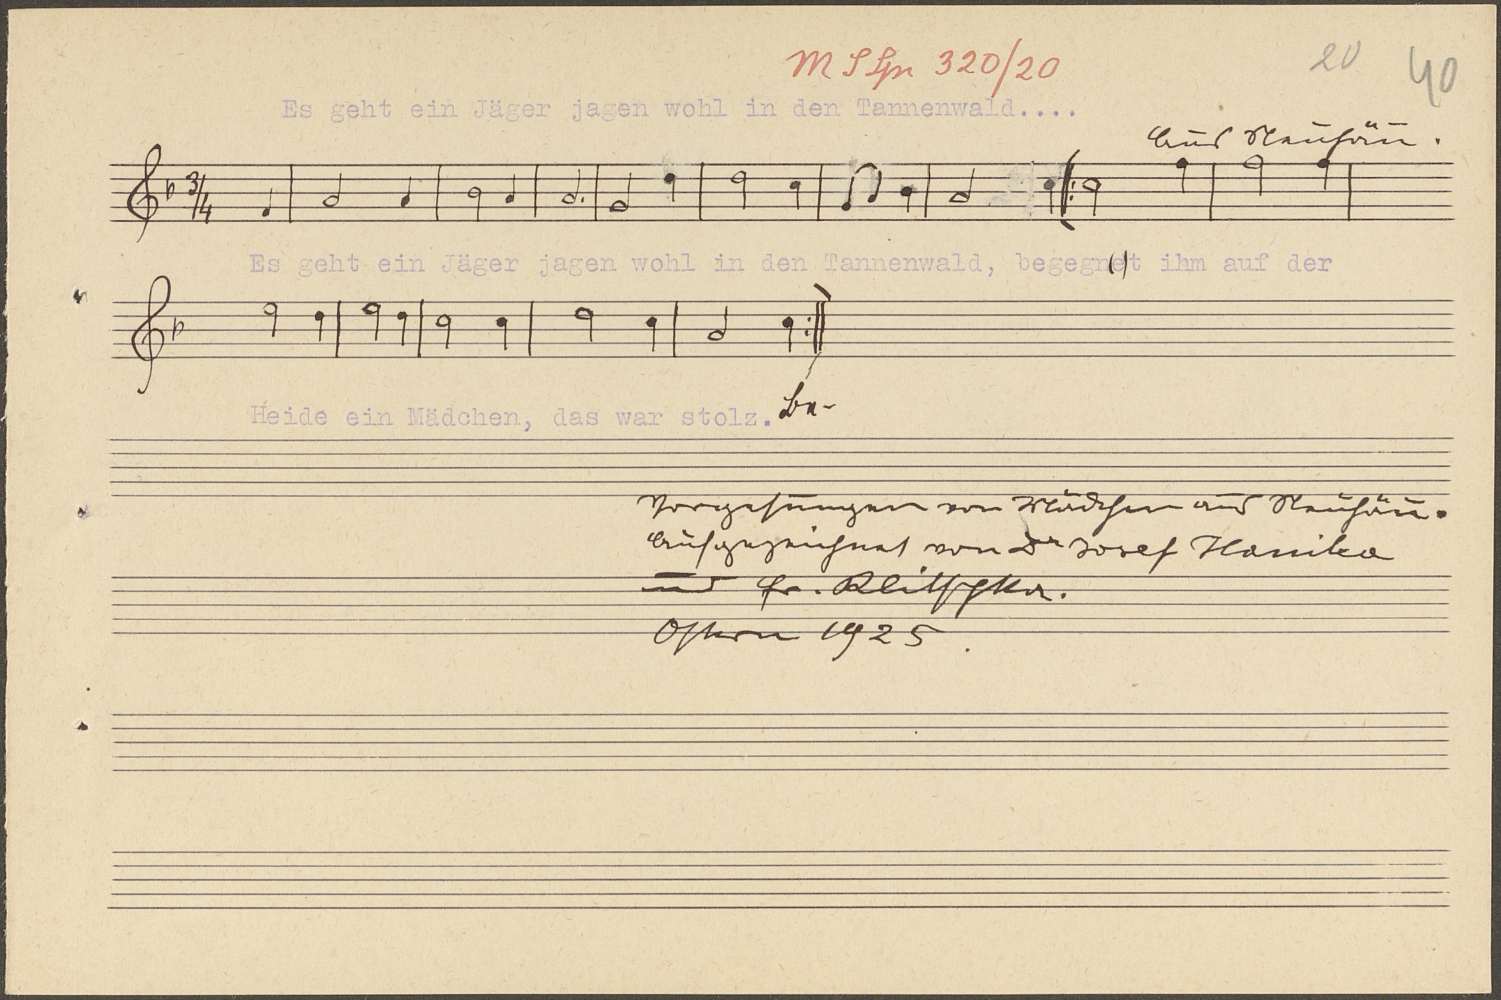 M S Spr 320/20
20
40
Es geht ein Jäger jagen wohl in den Tannenwald....
Aus Neuhäu.
3/4
Es geht ein Jäger jagen wohl in den Tannenwald, begegn(e)t ihm auf der
Heide ein Mädchen, das war stolz. Be-
Vorgesungen von Mädchen aus Neuhäu.
Aufgezeichnet von Dr Josef Hanika
und Fr. Klitschka.
Ostern 1925.